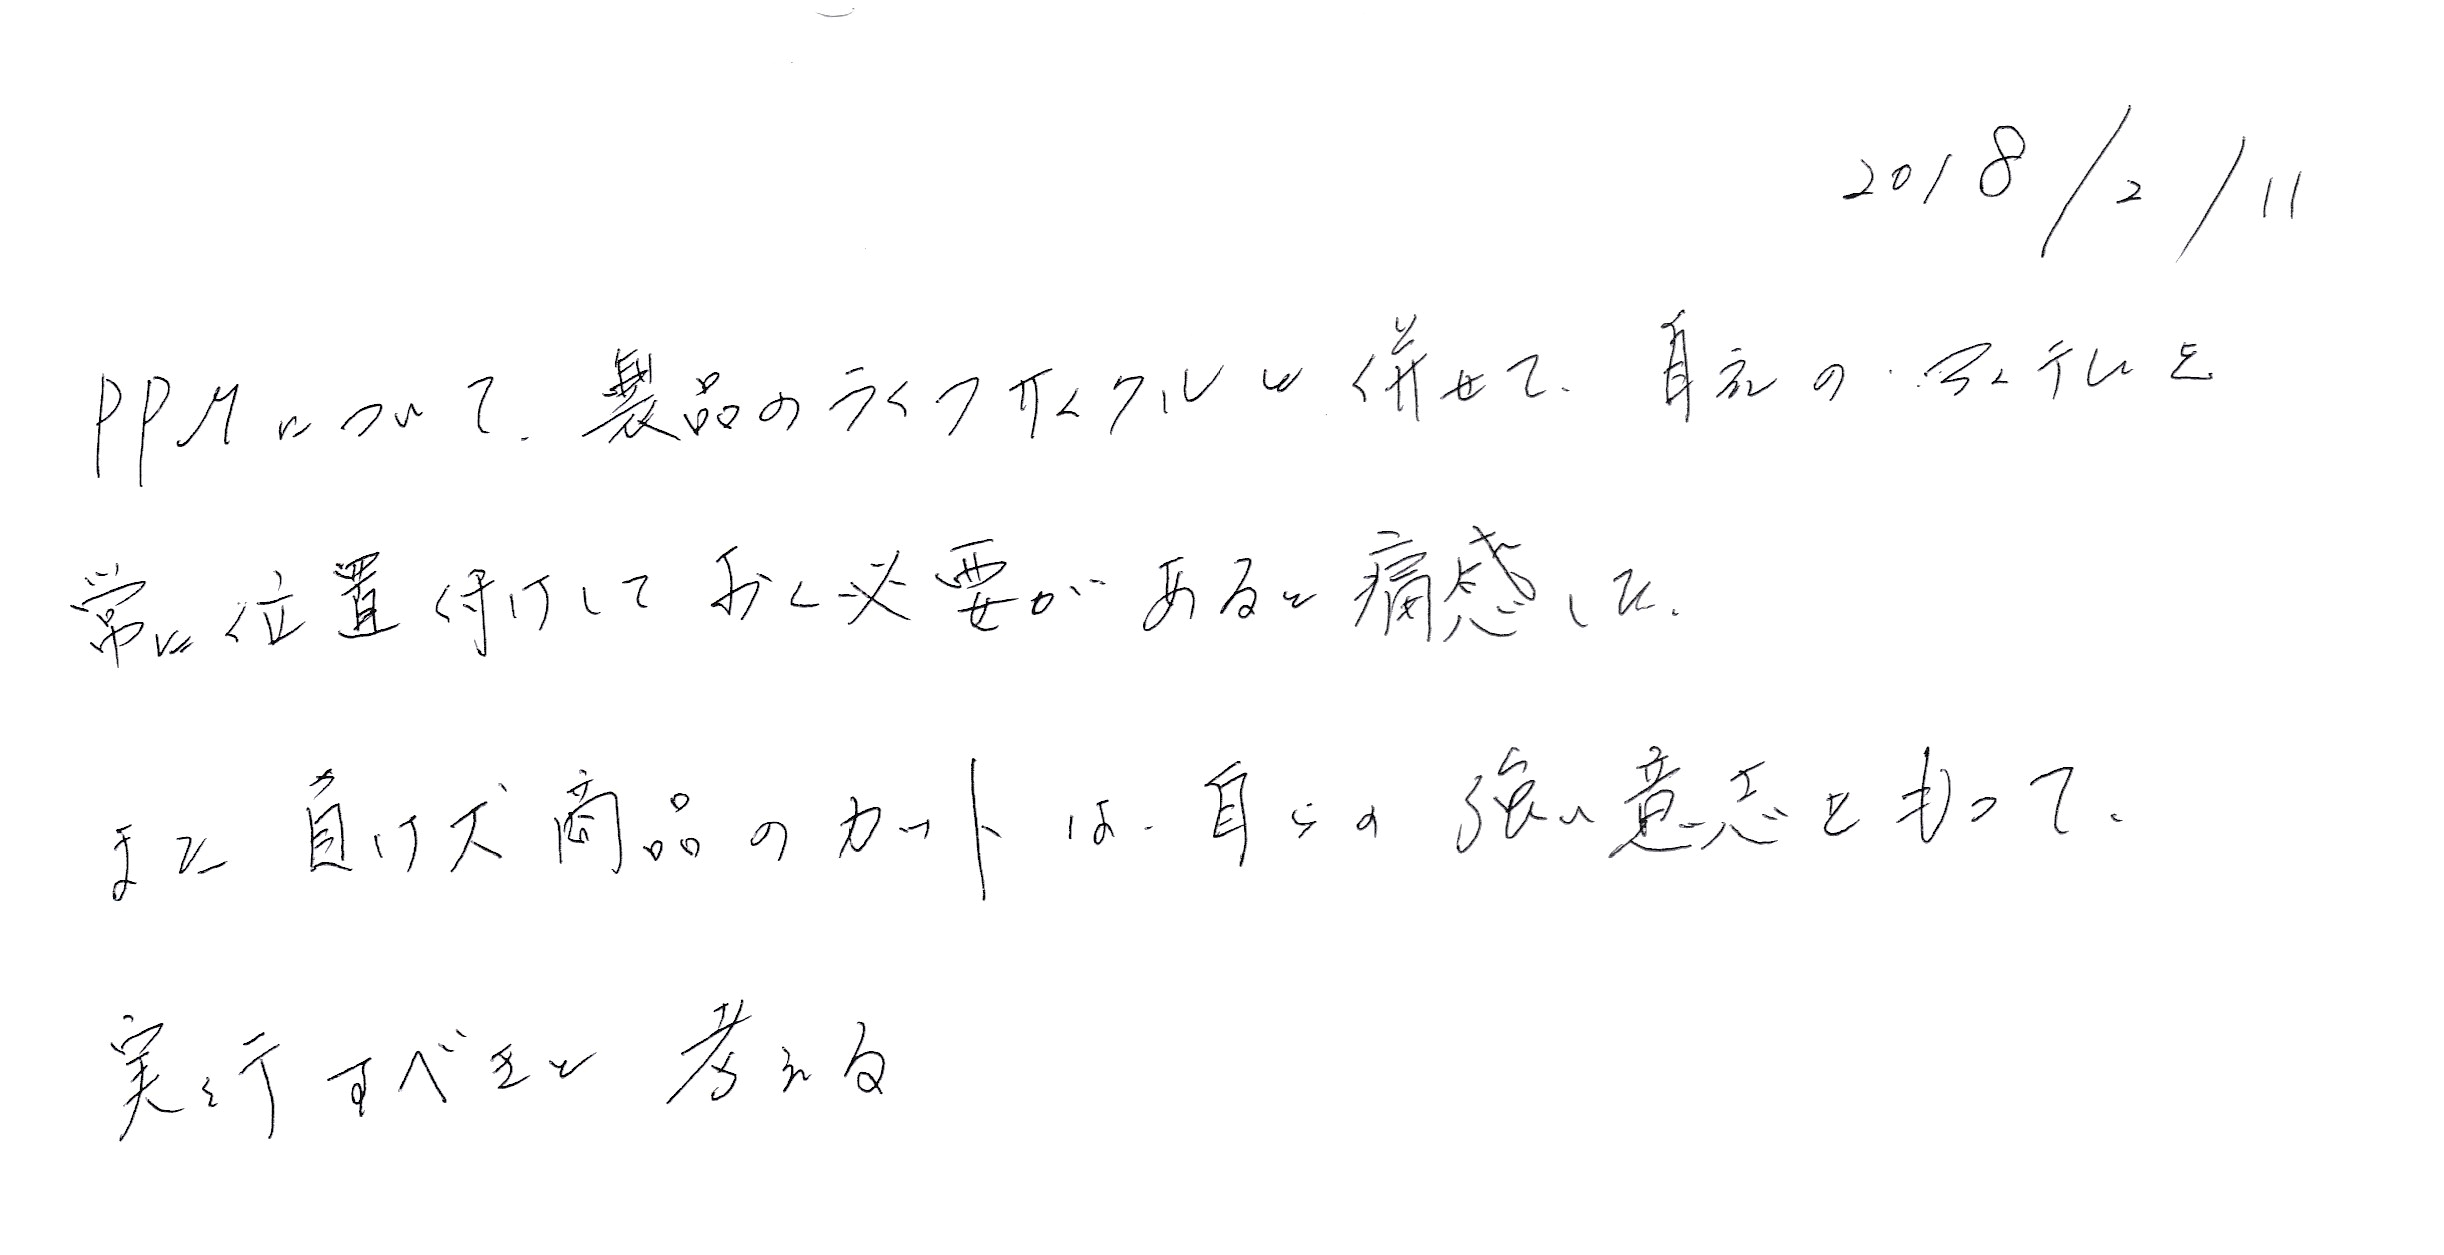 2018/2/11
PPMについて、製品のライフサイクルと併せて、自社のアイテムを
常に位置付けしておく必要があると痛感した。
また負け犬商品のカットは、自らの強い意志をもって、
実行すべきと考える